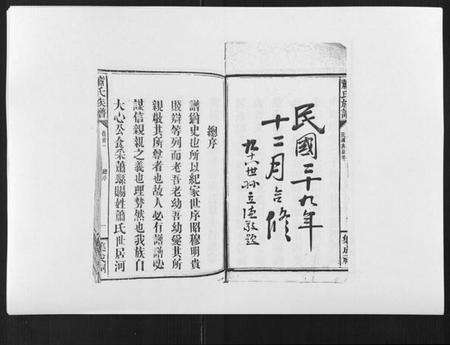 民國三十九年
十二月合修
蕭氏族譜
總序
譜猶史也所以紀家世序昭穆明貴
賤辯等列而老吾老幼吾幼愛其所
親敬其所尊者也故人必有譜譜必
謹信親親之義也理勢然也我族自
大心公食采蕭縣賜姓蕭氏世居河
蕭氏族譜
卷首
總序
一
集成